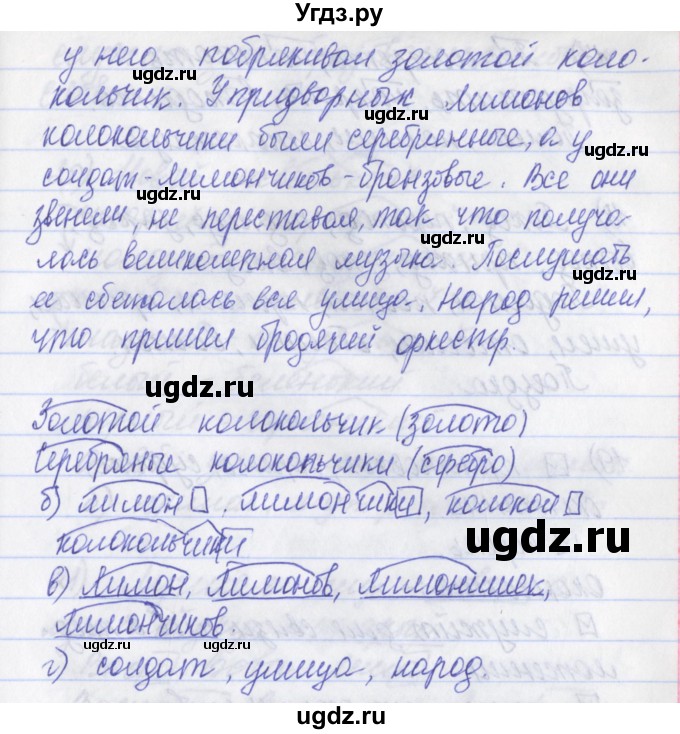 Угдз.ру
у него побрякивал золотой коло-
кольчик. У придворных Лимонов
колокольчики были серебрянные, а у
солдат-Лимончиков - бронзовые. Все они
звенели, не переставая, так что получа-
лась великолепная музыка. Послушать
ее сбежалась вся улица. Народ решил,
что пришел бродячий оркестр.
Золотой колокольчик (золото)
Серебряные колокольчики (серебро)
б) лимон, лимончики, колокол
колокольчики
в) Лимон, Лимонов, Лимонишек,
Лимончиков.
г) солдат, улица, народ
ugdz.ru
ugdz.ru
ugdz.ru
ugdz.ru
ugdz.ru
ugdz.ru
ugdz.ru
ugdz.ru
ugdz.ru
ugdz.ru
ugdz.ru
ugdz.ru